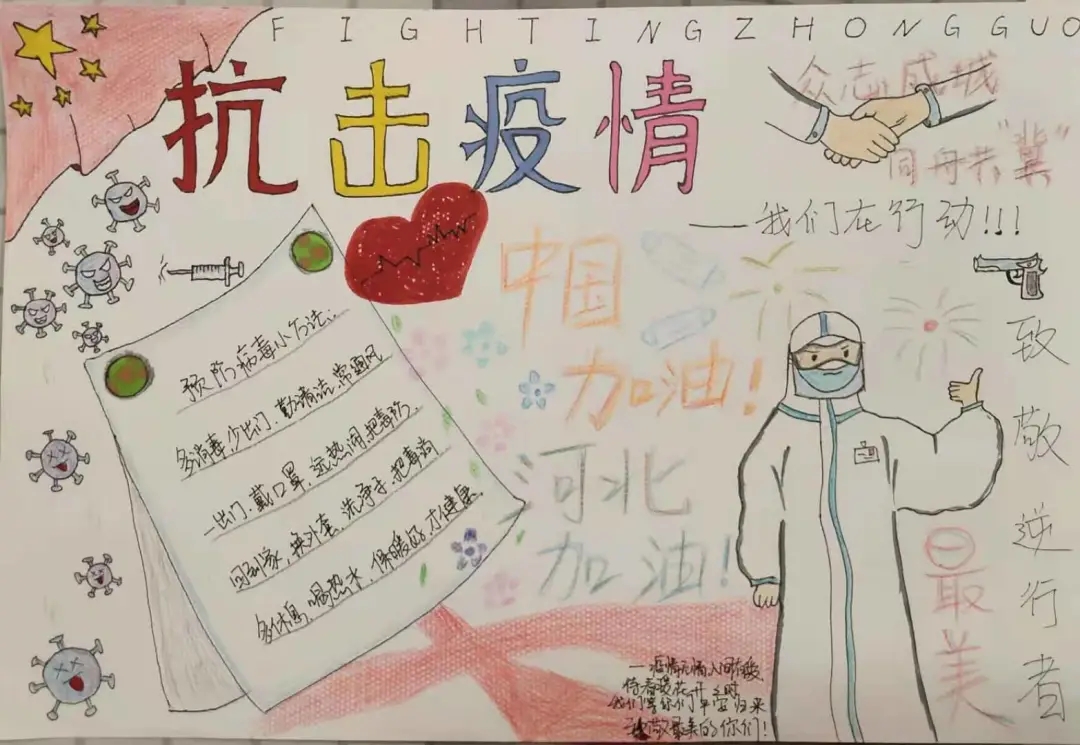 FIGHTINGZHONGGUO
抗击疫情
众志成城
同舟共“冀”
——我们在行动!!!
预防病毒小方法:
多消毒,少出门,勤清洁,常通风
出门,戴口罩,远热闹,把毒防.
回到家,换外套,洗净手,把毒消
多休息,喝热水,保暖好,才健康.
中国
加油!
河北
加油!
致敬逆行者
最美
疫情无情人间有暖
待春暖花开之时
我们等你们平安归来
致敬最美的你们!